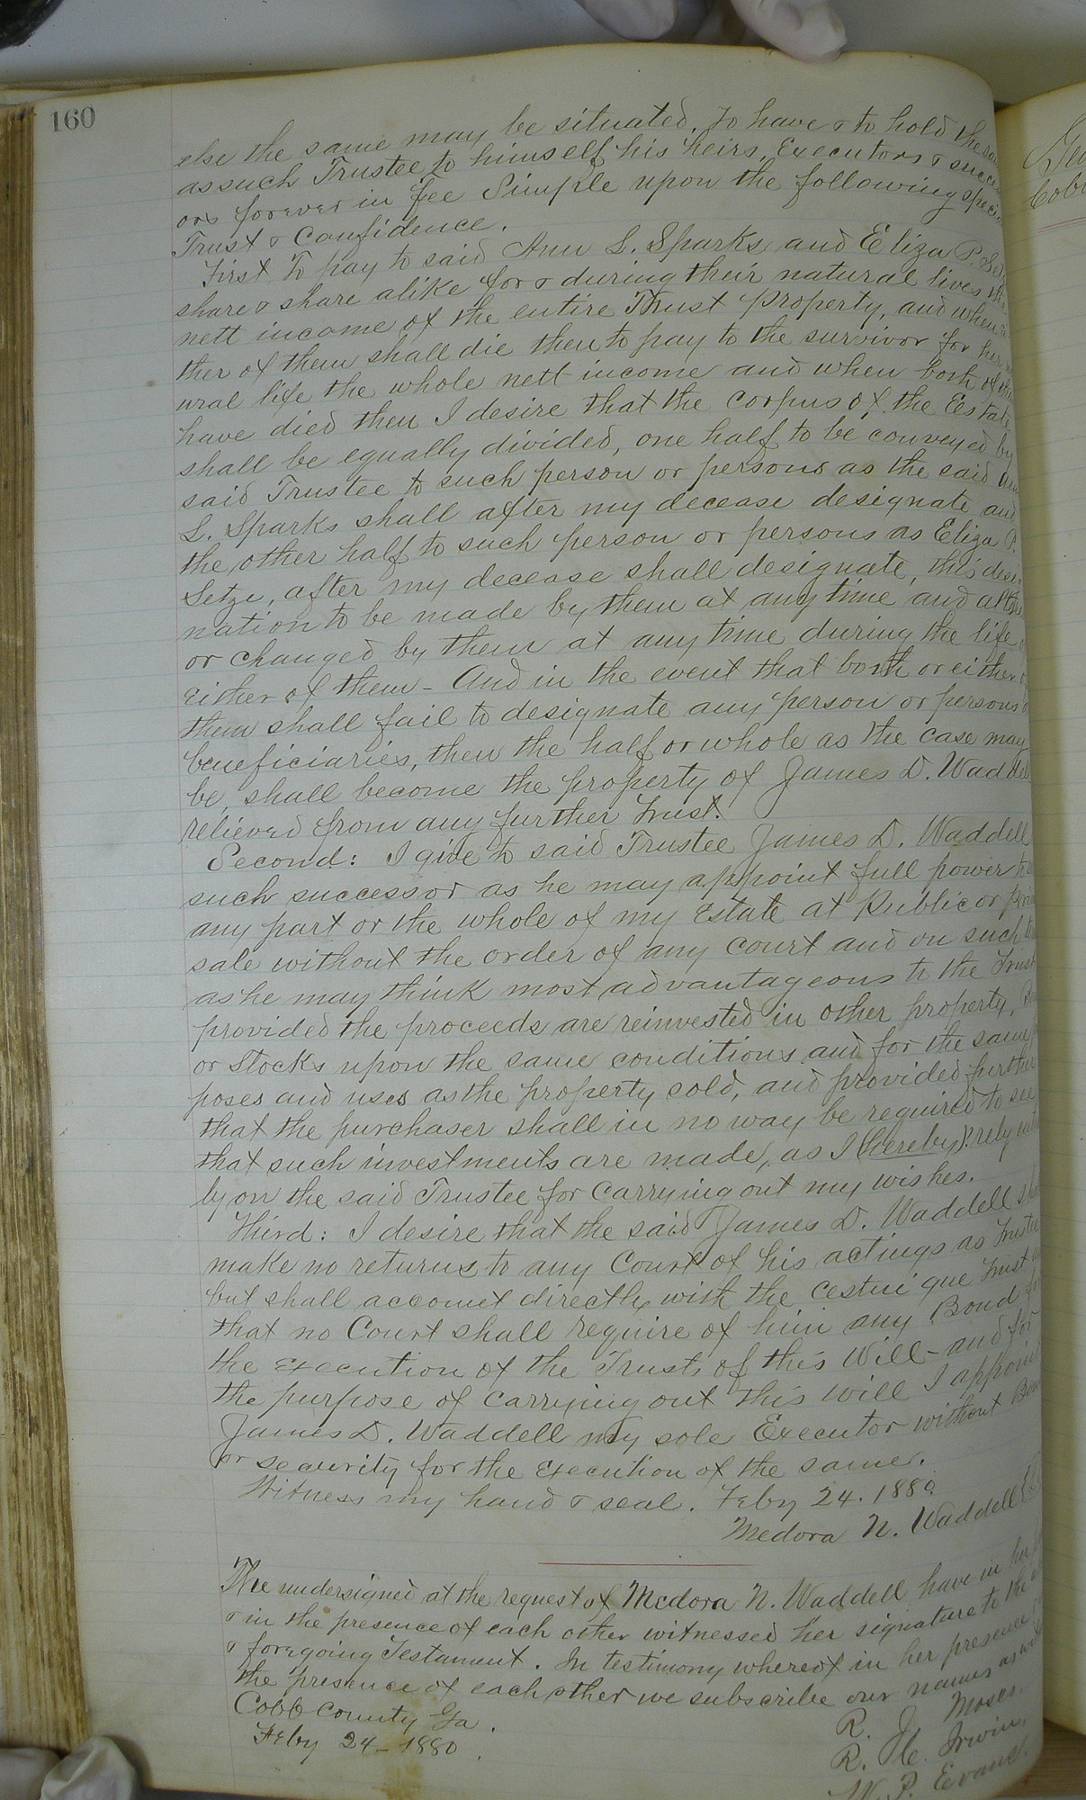 160
else the same may be situated. To have & to hold the
as such Trustee to himself his heirs, Executors &
ors forever in fee Simple upon the following
Trust & Confidence.
First To pay to said Ann S. Sparks and Eliza P.
share & share alike for & during their natural lives the
nett income of the entire Trust Property, and when
ther of them shall die then to pay to the survivor for her
ural life the whole nett income and when both of
have died then I desire that the corpus of the Estate
shall be equally divided, one half to be conveyed by
said Trustee to such person or persons as the said Ann
S. Sparks shall after my decease designate and
the other half to such person or persons as Eliza P.
Setze, after my decease shall designate, this
nation to be made by them at any time and
or changed by them at any time during the life
either of them - And in the event that both or either
them shall fail to designate any person or persons
beneficiaries, then the half or whole as the case may
be, shall become the property of James D. Waddell
relieved from any further trust.
Second: I give to said Trustee James D. Waddell
such successor as he may appoint full power
any part or the whole of my Estate at Public or
sale without the order of any court and on such
as he may think most advantageous to the Trust
provided the proceeds are reinvested in other property,
or Stocks upon the same conditions and for the same
poses and uses as the property sold, and provided further
that the purchaser shall in no way be required to see
that such investments are made, as I (hereby) rely
ly on the said Trustee for carrying out my wishes.
Third: I desire that the said James D. Waddell
make no returns to any Court of his actings as Trustee
but shall account directly with the cestui que trust
that no Court shall require of him any Bond for
the execution of the Trusts of this Will - and for
the purpose of carrying out this will I appoint
James D. Waddell my sole Executor without
or security for the execution of the same.
Witness my hand & seal. Feby 24. 1880
Medora N. Waddell
The undersigned at the request of Medora N. Waddell have in her
& in the presence of each other witnessed her signature to the
& foregoing Testament. In testimony whereof in her presence
the presence of each other we subscribe our names as
Cobb County Ga.
Feby 24 - 1880.
R. J. Moses.
R. C. Irwin,
W. P. Evans.
Cobb